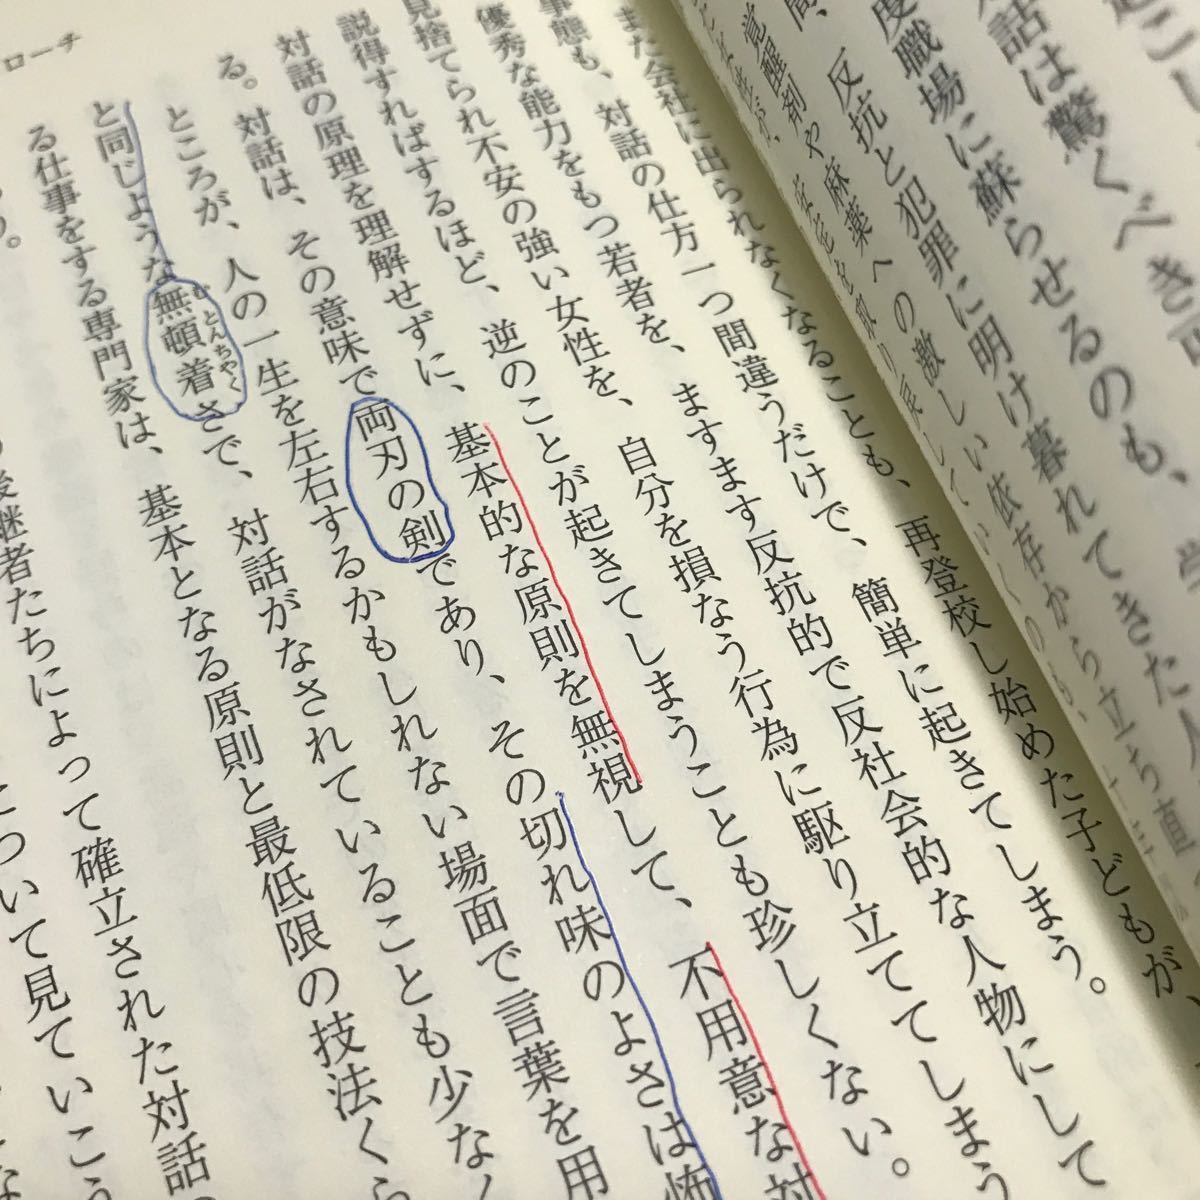 起こし
話は驚くべき可
度職場に蘇らせるのも、学
間、反抗と犯罪に明け暮れてきた人
覚醒剤や麻薬への激しい依存から立ち直
また会社に出られなくなることも、再登校し始めた子どもが、
事態も、対話の仕方一つ間違うだけで、簡単に起きてしまう。
優秀な能力をもつ若者を、ますます反抗的で反社会的な人物にして
見捨てられ不安の強い女性を、自分を損なう行為に駆り立ててしまう
説得すればするほど、逆のことが起きてしまうことも珍しくない。
対話の原理を理解せずに、基本的な原則を無視して、不用意な対
る。対話は、その意味で両刃の剣であり、その切れ味のよさは怖
ところが、人の一生を左右するかもしれない場面で言葉を用
と同じような無頓着さで、対話がなされていることも少なく
むとんちゃく
る仕事をする専門家は、基本となる原則と最低限の技法くら
う。
後継者たちによって確立された対話の
について見ていこう
ローチ